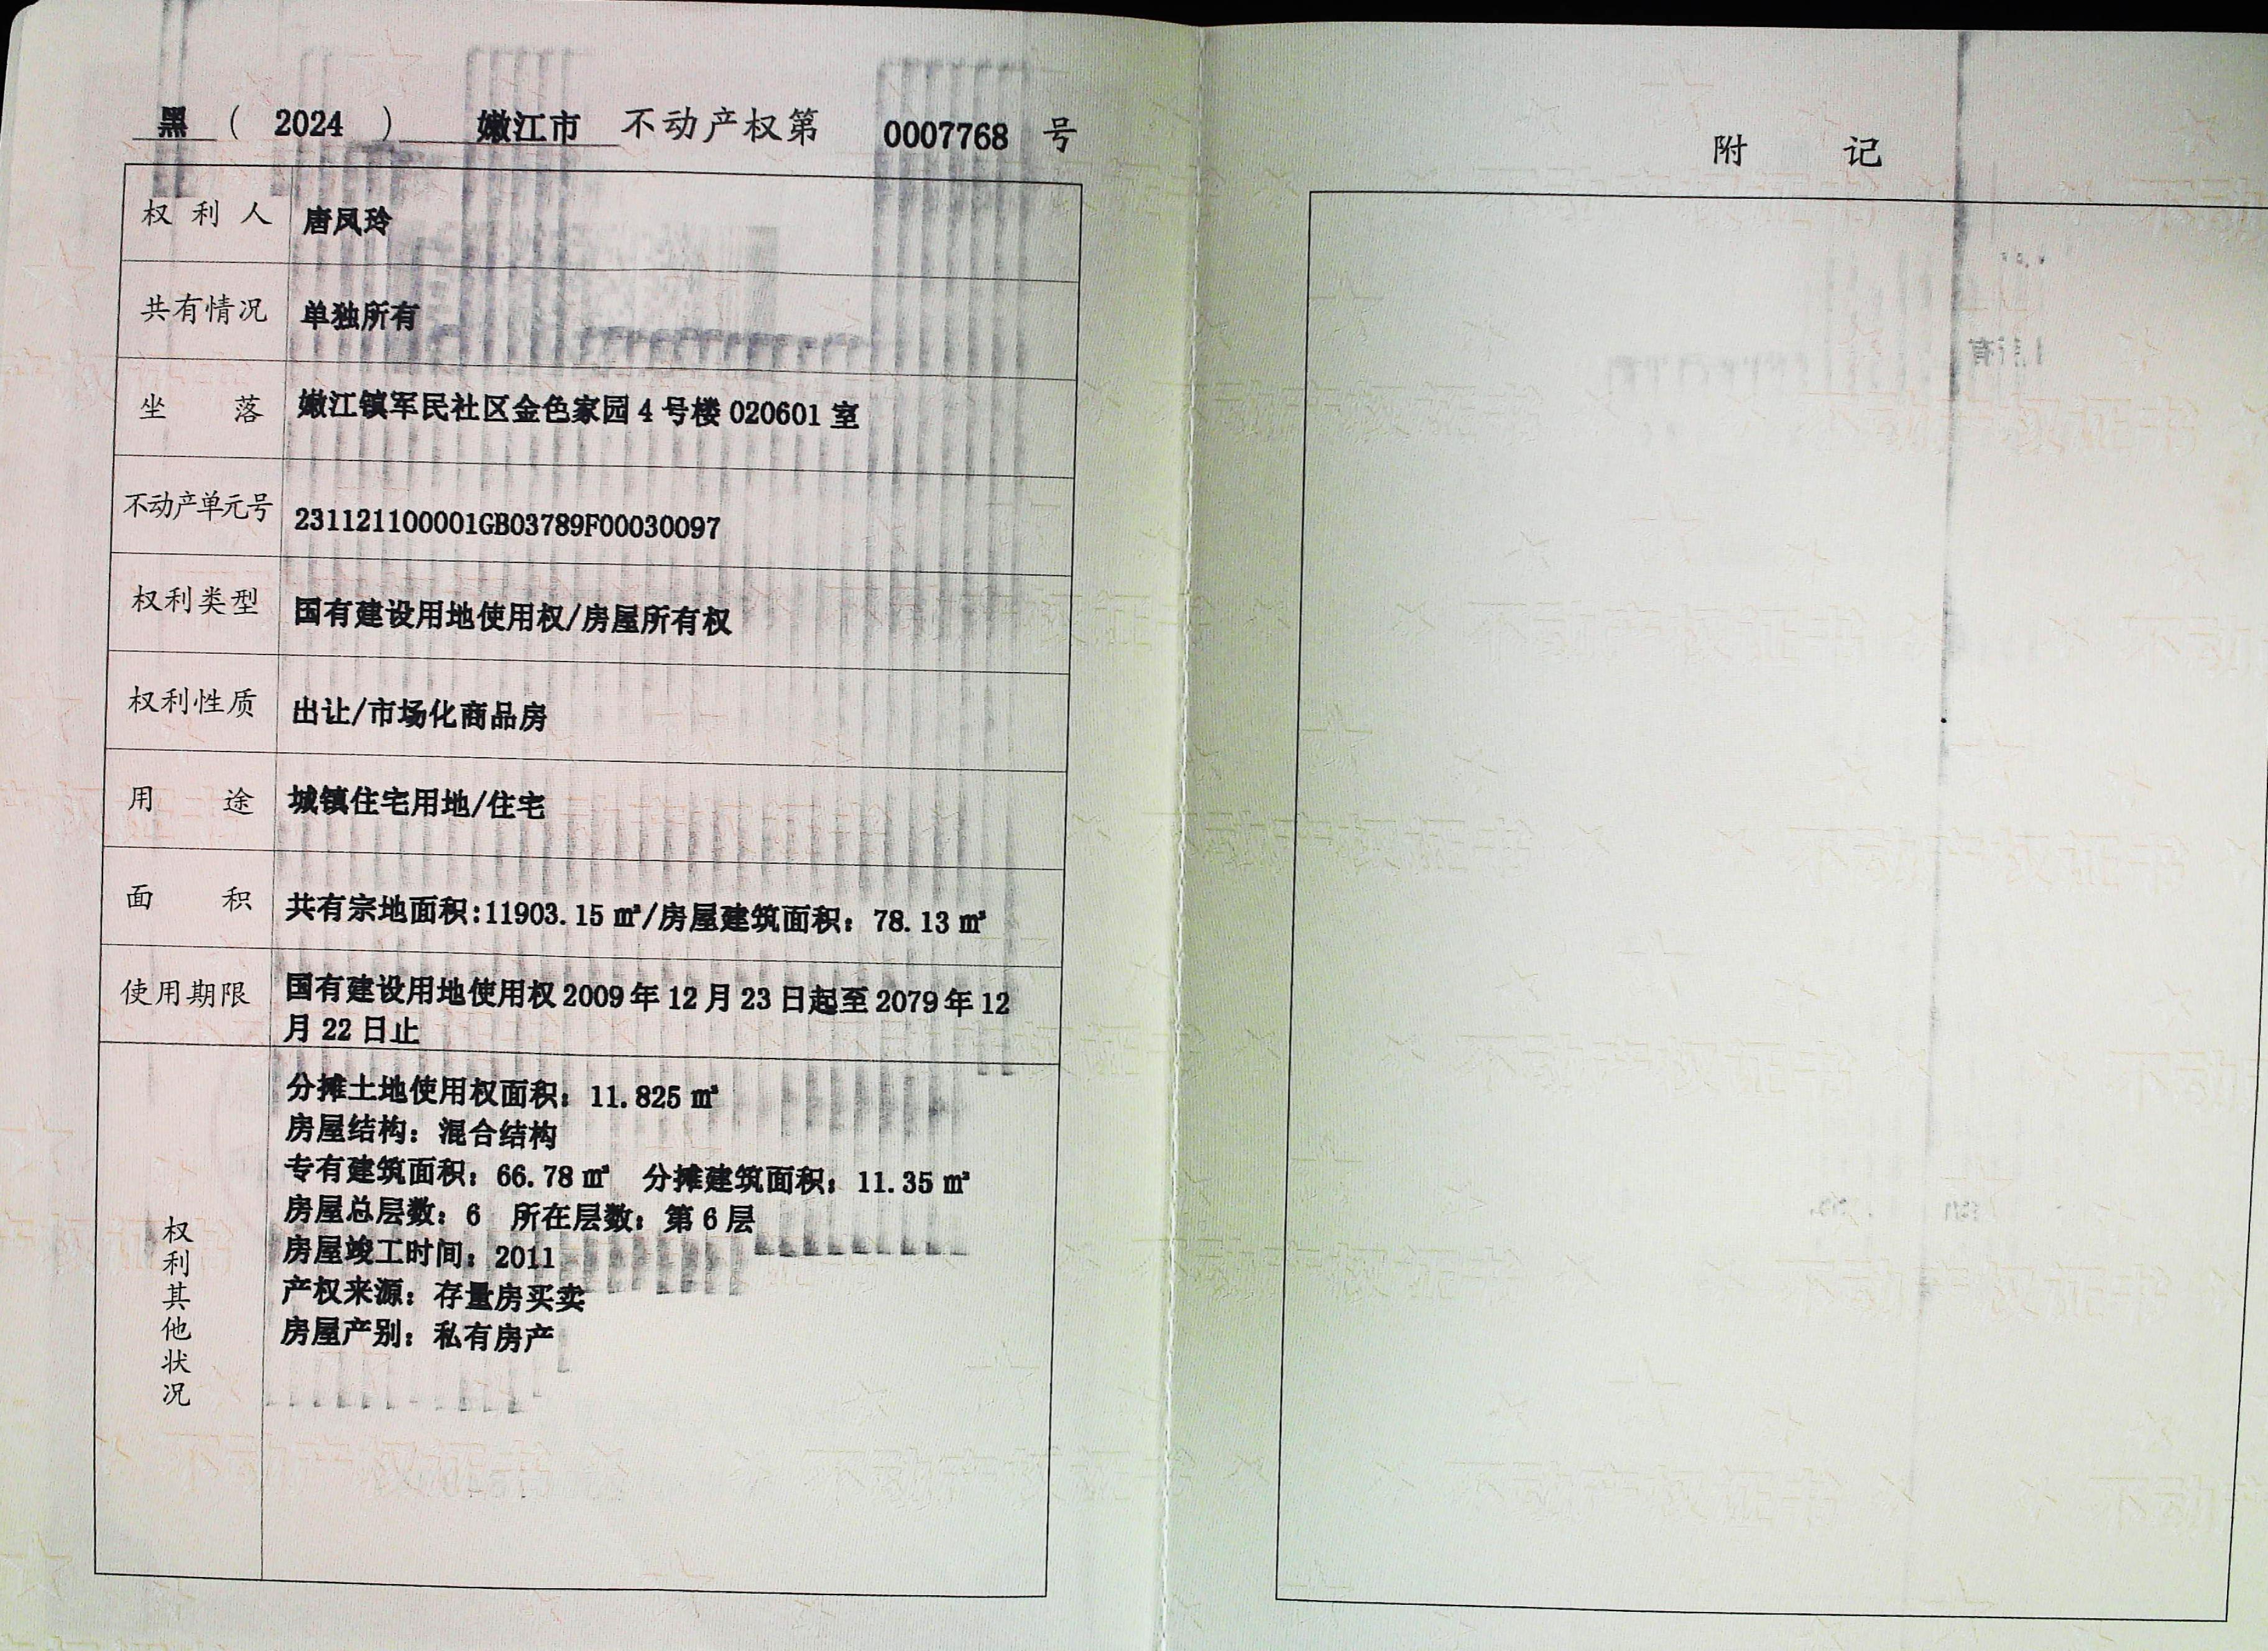 黑 ( 2024 ) 嫩江市 不动产权第 0007768 号
权利人 唐凤玲
共有情况 单独所有
坐落 嫩江镇军民社区金色家园 4 号楼 020601 室
不动产单元号 231121100001GB03789F00030097
权利类型 国有建设用地使用权/房屋所有权
权利性质 出让/市场化商品房
用途 城镇住宅用地/住宅
面积 共有宗地面积:11903.15 ㎡/房屋建筑面积：78.13 ㎡
使用期限 国有建设用地使用权 2009 年 12 月 23 日起至 2079 年 12
月 22 日止
权利其他状况
分摊土地使用权面积：11.825 ㎡
房屋结构：混合结构
专有建筑面积：66.78 ㎡ 分摊建筑面积：11.35 ㎡
房屋总层数：6 所在层数：第 6 层
房屋竣工时间：2011
产权来源：存量房买卖
房屋产别：私有房产
附记